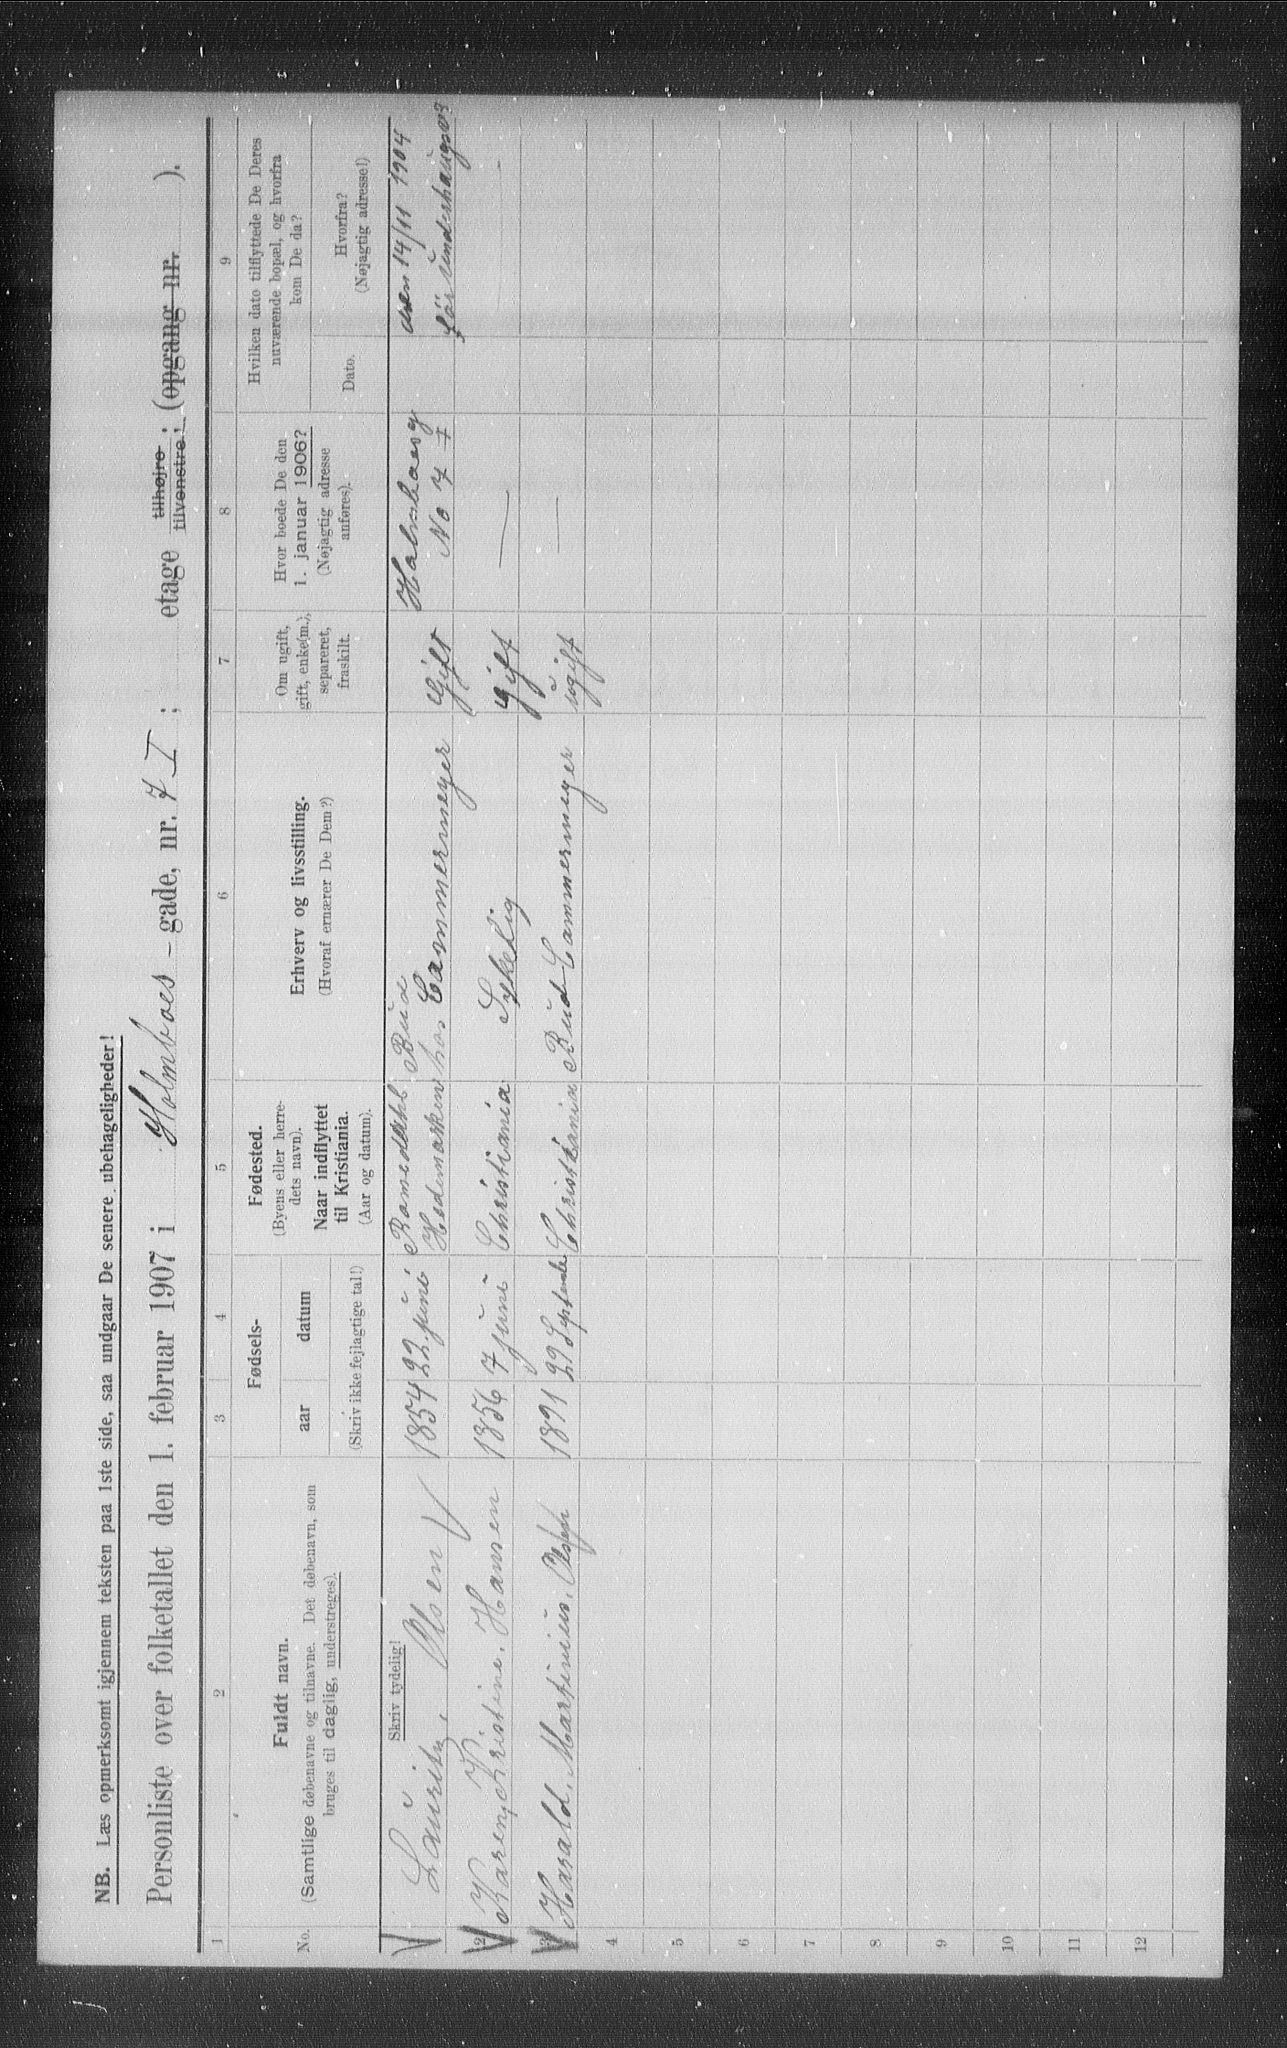 NB. Læs opmerksomt igjennem teksten paa 1ste side, saa undgaar De senere ubehageligheder!
Personliste over folketallet den 1. februar 1907 i Holmboes - gade, nr. 7 I ; etage tilhøjre tilvenstre; (opgang nr. ).
1 2 3 4 5 6 7 8 9
No.
Fuldt navn.
(Samtlige døbenavne og tilnavne. Det døbenavn, som
bruges til daglig, understreges).
Fødsels-
aar datum
(Skriv ikke fejlagtige tal!)
Fødested.
(Byens eller herre-
dets navn).
Naar indflyttet
til Kristiania.
(Aar og datum).
Erhverv og livsstilling.
(Hvoraf ernærer De Dem?)
Om ugift,
gift, enke(m.),
separeret,
fraskilt.
Hvor boede De den
1. januar 1906?
(Nøjagtig adresse
anføres).
Hvilken dato tilflyttede De Deres
nuværende bopæl, og hvorfra
kom De da?
Dato.
Hvorfra?
(Nøjagtig adresse!)
Skriv tydelig!
Lauritz Olsen 1854 22 juni Hedemarken Bud hos Cammermeyer Gift No 7 I den 14/11 1904
2 Karen Kristine Hansen 1856 7 juni Christiania Sykelig Gift — —
3 Harald Martinius Olsen 1891 29 September Christiania Bud Cammermeyer ugift —
4
5
6
7
8
9
10
11
12